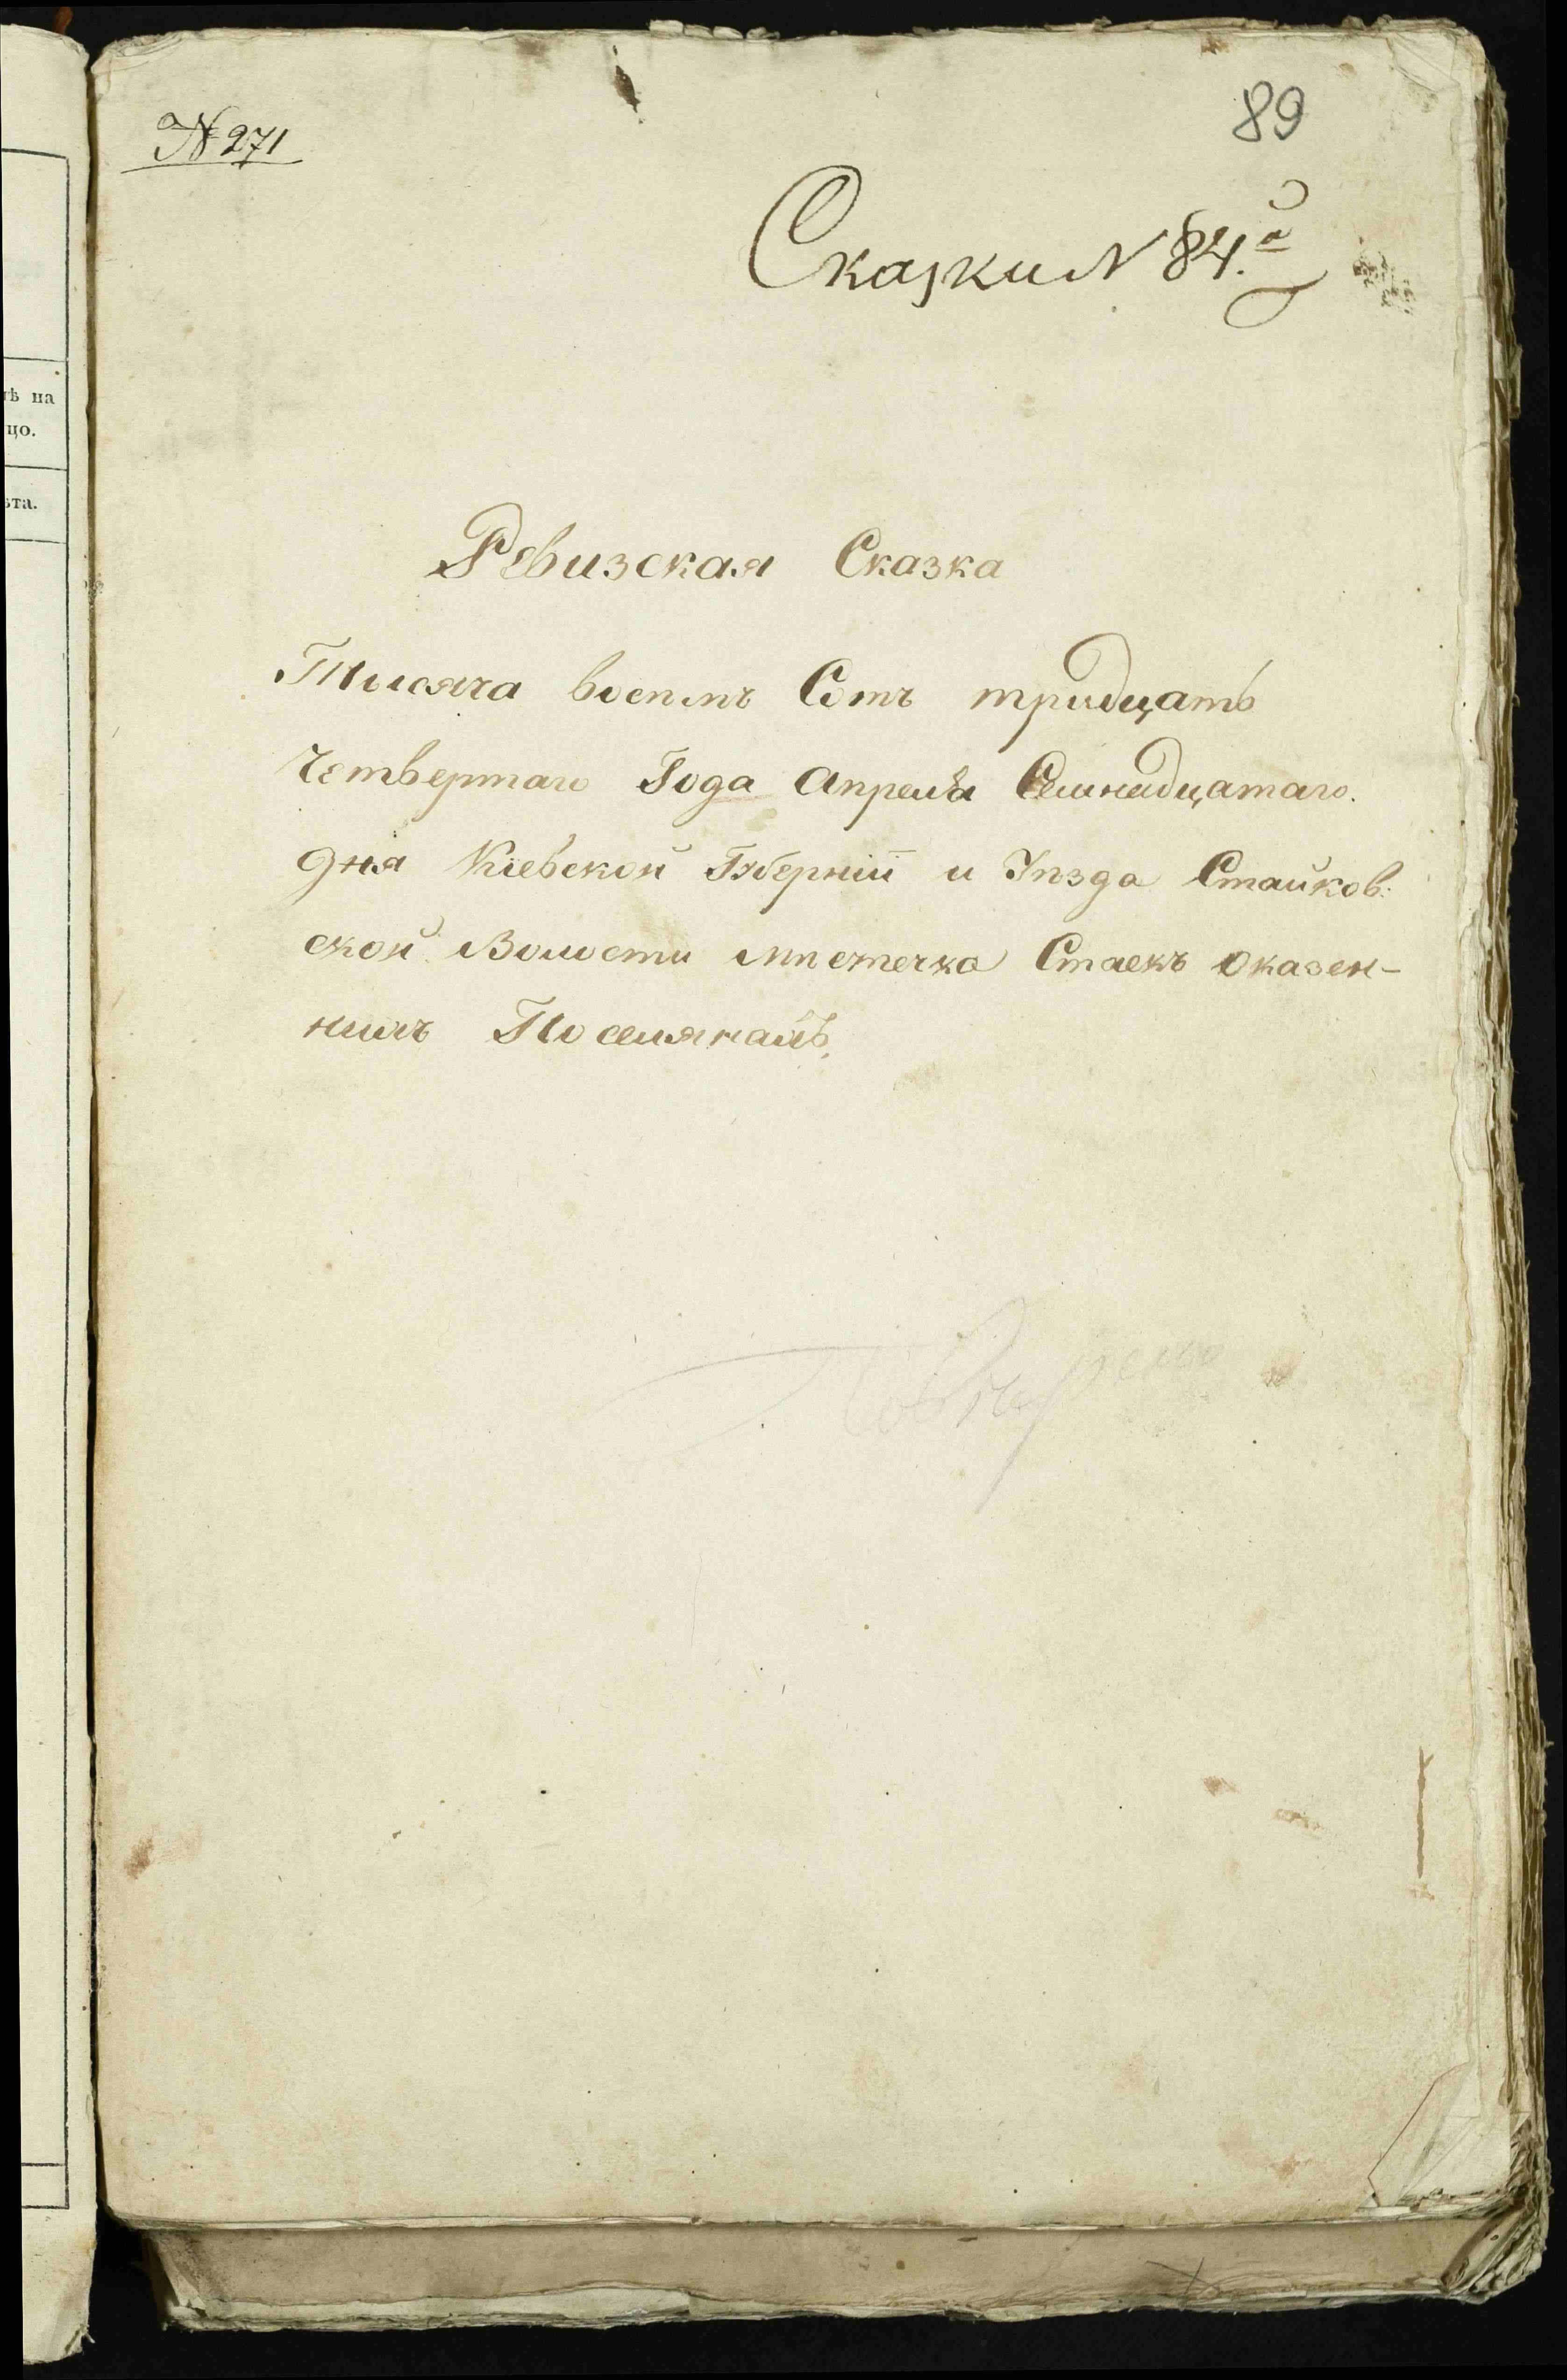 № 271
89
Сказки N 84.й
Ревизская Сказка
Тисяча восемъ Сотъ тридцать
Четвертаго Года Апреля Семнадцатаго.
дня Кіевской Губерніи и Уѣзда Стайков:
ской Волости мѣстечка Стаекъ оказен-
нихъ Поселянахъ.
ѣ на
цо.
ѣта.